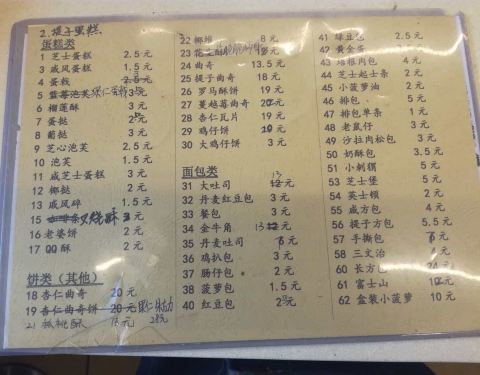 2.提子蛋糕
蛋糕类
1 芝士蛋糕 2.5元
3 戚风蛋糕 1.5元
4 蛋戟 2.5元
5 蓝莓泡芙
6 榴莲酥 3元
7 蛋挞 2元
8 葡挞 3元
9 芝心泡芙 2.5元
10 泡芙 1.5元
11 戚芝士蛋糕 3元
12 椰挞 2元
13 戚风碎 1.5元
15 叉烧酥 3元
16 老婆饼 2元
17 QQ酥 2元
饼类（其他）
18 杏仁曲奇 20元
19 杏仁曲奇饼 20元
21 核桃酥
22 椰堆 8元
23
24 曲奇 13.5元
25 提子曲奇 18元
26 罗马酥饼 19元
27 蔓越莓曲奇
28 杏仁瓦片 19元
29 鸡仔饼
30 大鸡仔饼 3元
面包类
31 大吐司 13
32 丹麦红豆包 3元
33 餐包 3元
34 金牛角 13
35 丹麦吐司
36 鸡扒包 3元
37 肠仔包 2元
38 菠萝包 1.5元
40 红豆包
41 绿豆包 2.5元
42 黄金蛋
43 培根肉包 4元
44 芝士起士条 2元
45 小菠萝油 2元
46 排包 5元
47 排包单条 1元
48 老鼠仔 3元
49 沙拉肉松包 3元
50 奶酥包 3.5元
51 小刺猬 5元
53 芝士堡 5元
54 英士顿 2元
55 戚方包 4元
56 提子方包 5.5元
57 手撕包
58 三文治 4元
60 长方包
61 富士山
62 盒装小菠萝 10元